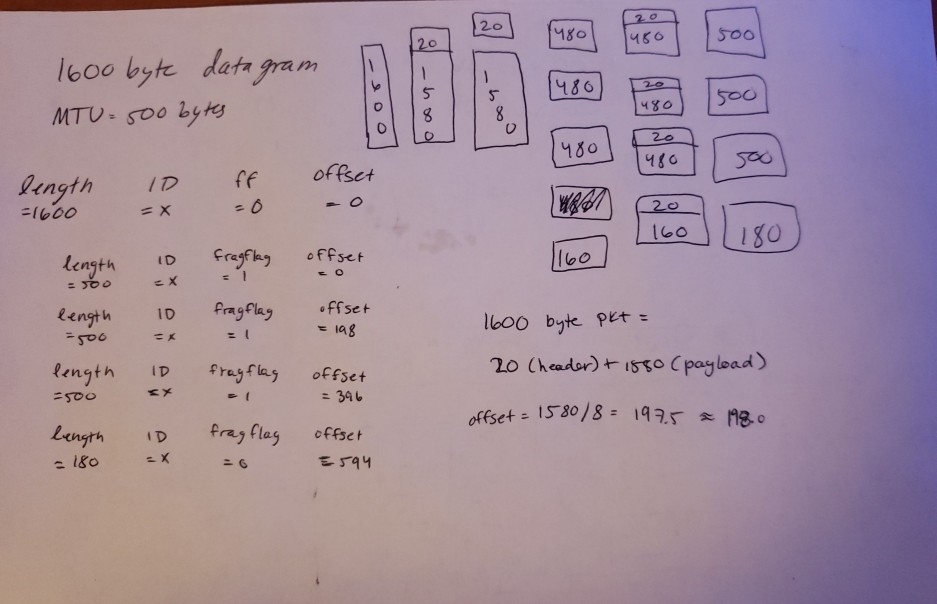 1600 byte datagram
MTU = 500 bytes
length ID ff offset
=1600 = x = 0 = 0
length ID fragflag offset
= 500 = x = 1 = 0
length ID fragflag offset
=500 = x = 1 = 198
length ID fragflag offset
=500 = x = 1 = 396
length ID fragflag offset
= 180 = x = 0 = 594
1600
20
1580
20
1580
480
480
480
160
20
480
20
480
20
480
20
160
500
500
500
180
1600 byte pkt =
20 (header) + 1580 (payload)
offset = 1580/8 = 197.5 ≈ 198.0